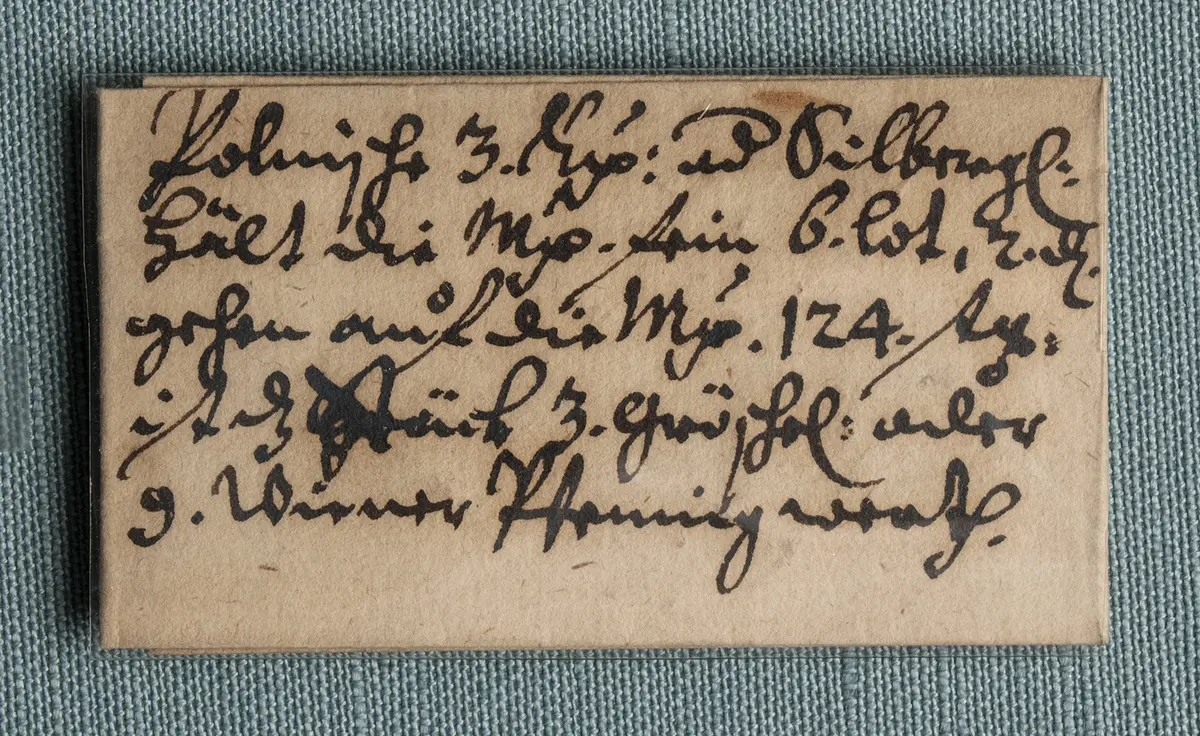 Polnische 3. Kr: ad Silbergl:
hält die Mr. fein 6. lot, 2. d.
gehen auf die Mr. 124. st:
ist dz Stück 3. Gröschel: oder
9. Wiener Pfenning werth.